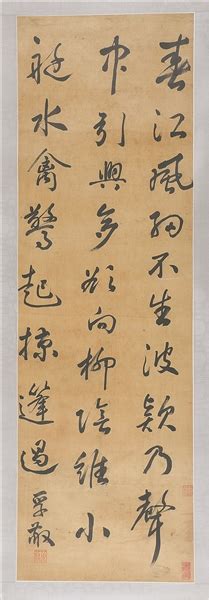 春江風細不生波欵乃聲
中引興多欲向柳陰維小
艇水禽驚起掠篷過